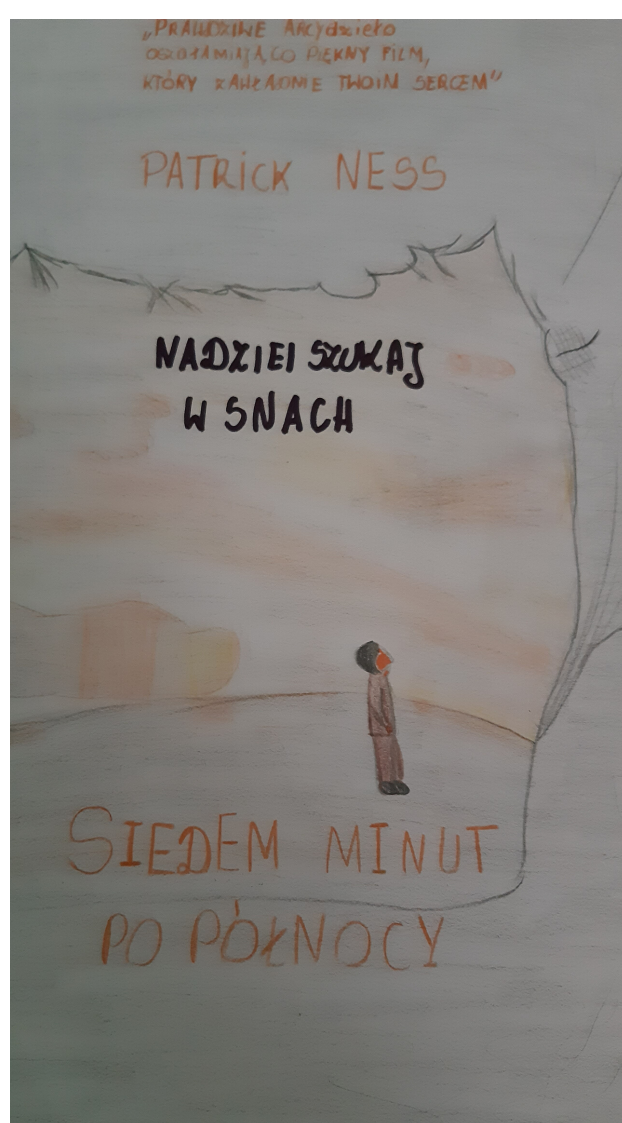 „PRAWDZIWE ARCYdzieło
OSZOŁAMIAJĄCO PIĘKNY FILM,
KTÓRY ZAWŁADNIE TWOIM SERCEM”
PATRICK NESS
NADZIEI SZUKAJ
W SNACH
SIEDEM MINUT
PO PÓŁNOCY